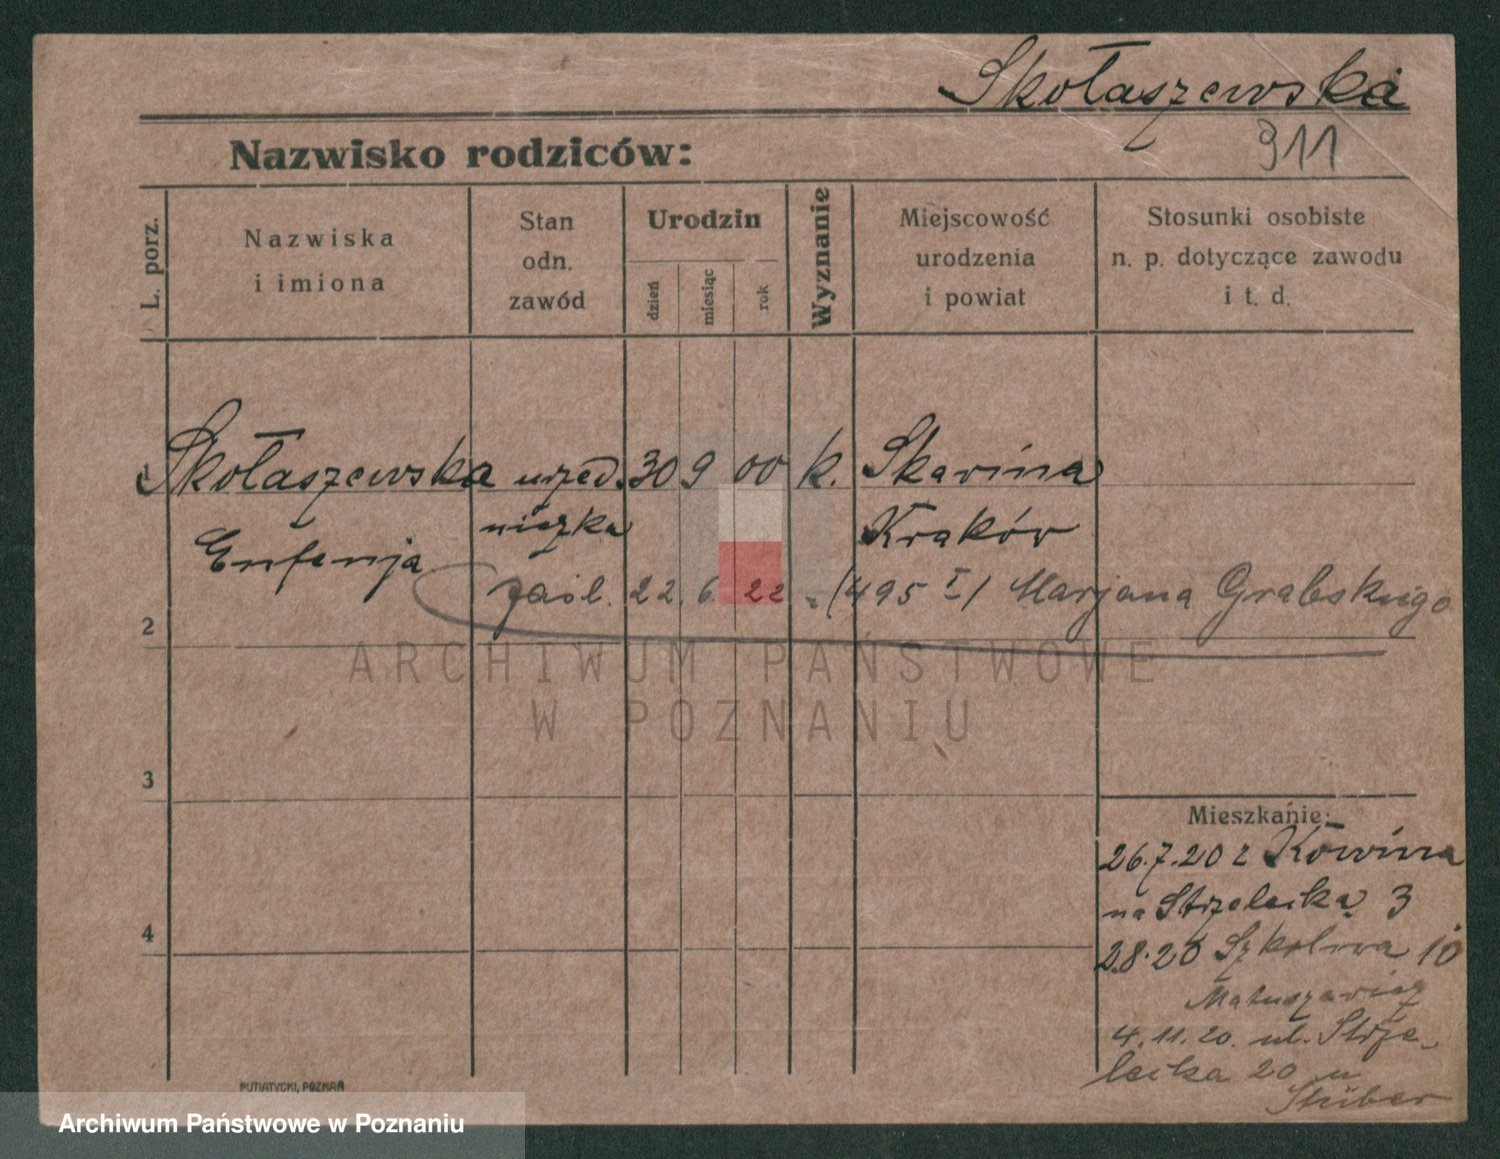 Skołaszewska
911
Nazwisko rodziców:
L. porz.
Nazwiska
i imiona
Stan
odn.
zawód
Urodzin
dzień
miesiąc
rok
Wyznanie
Miejscowość
urodzenia
i powiat
Stosunki osobiste
n. p. dotyczące zawodu
i t. d.
1 Skołaszewska urzęd. 30 9 00 k. Skawina
Eufenja niczka Kraków
zaśl. 22. 6. 22 (495 I/ Marjana Grabskiego
2
ARCHIWUM PAŃSTWOWE
W POZNANIU
3
4
Mieszkanie:
26.7.20 z Kowina
na Strzelecka 3
2.8.20 Szkolna 10
Matuszewicz
4.11.20. ul. Strze-
lecka 20 u
Stüber
PUTIATYCKI, POZNAŃ
Archiwum Państwowe w Poznaniu